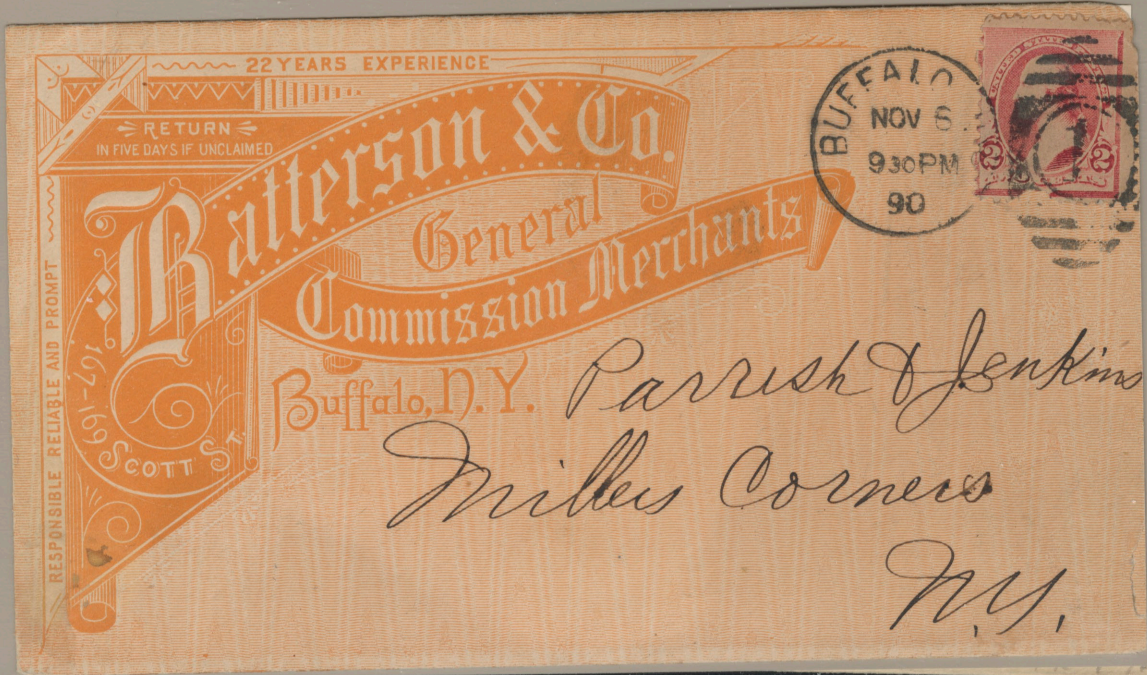 22 YEARS EXPERIENCE
RETURN
IN FIVE DAYS IF UNCLAIMED
Batterson & Co.
General
Commission Merchants
Buffalo, N.Y.
167-169
SCOTT ST.
RESPONSIBLE RELIABLE AND PROMPT
BUFFALO
NOV 6
930PM
90
1
UNITED STATES
2 2
Parrish & Jenkins
Millers Corners
N.Y.